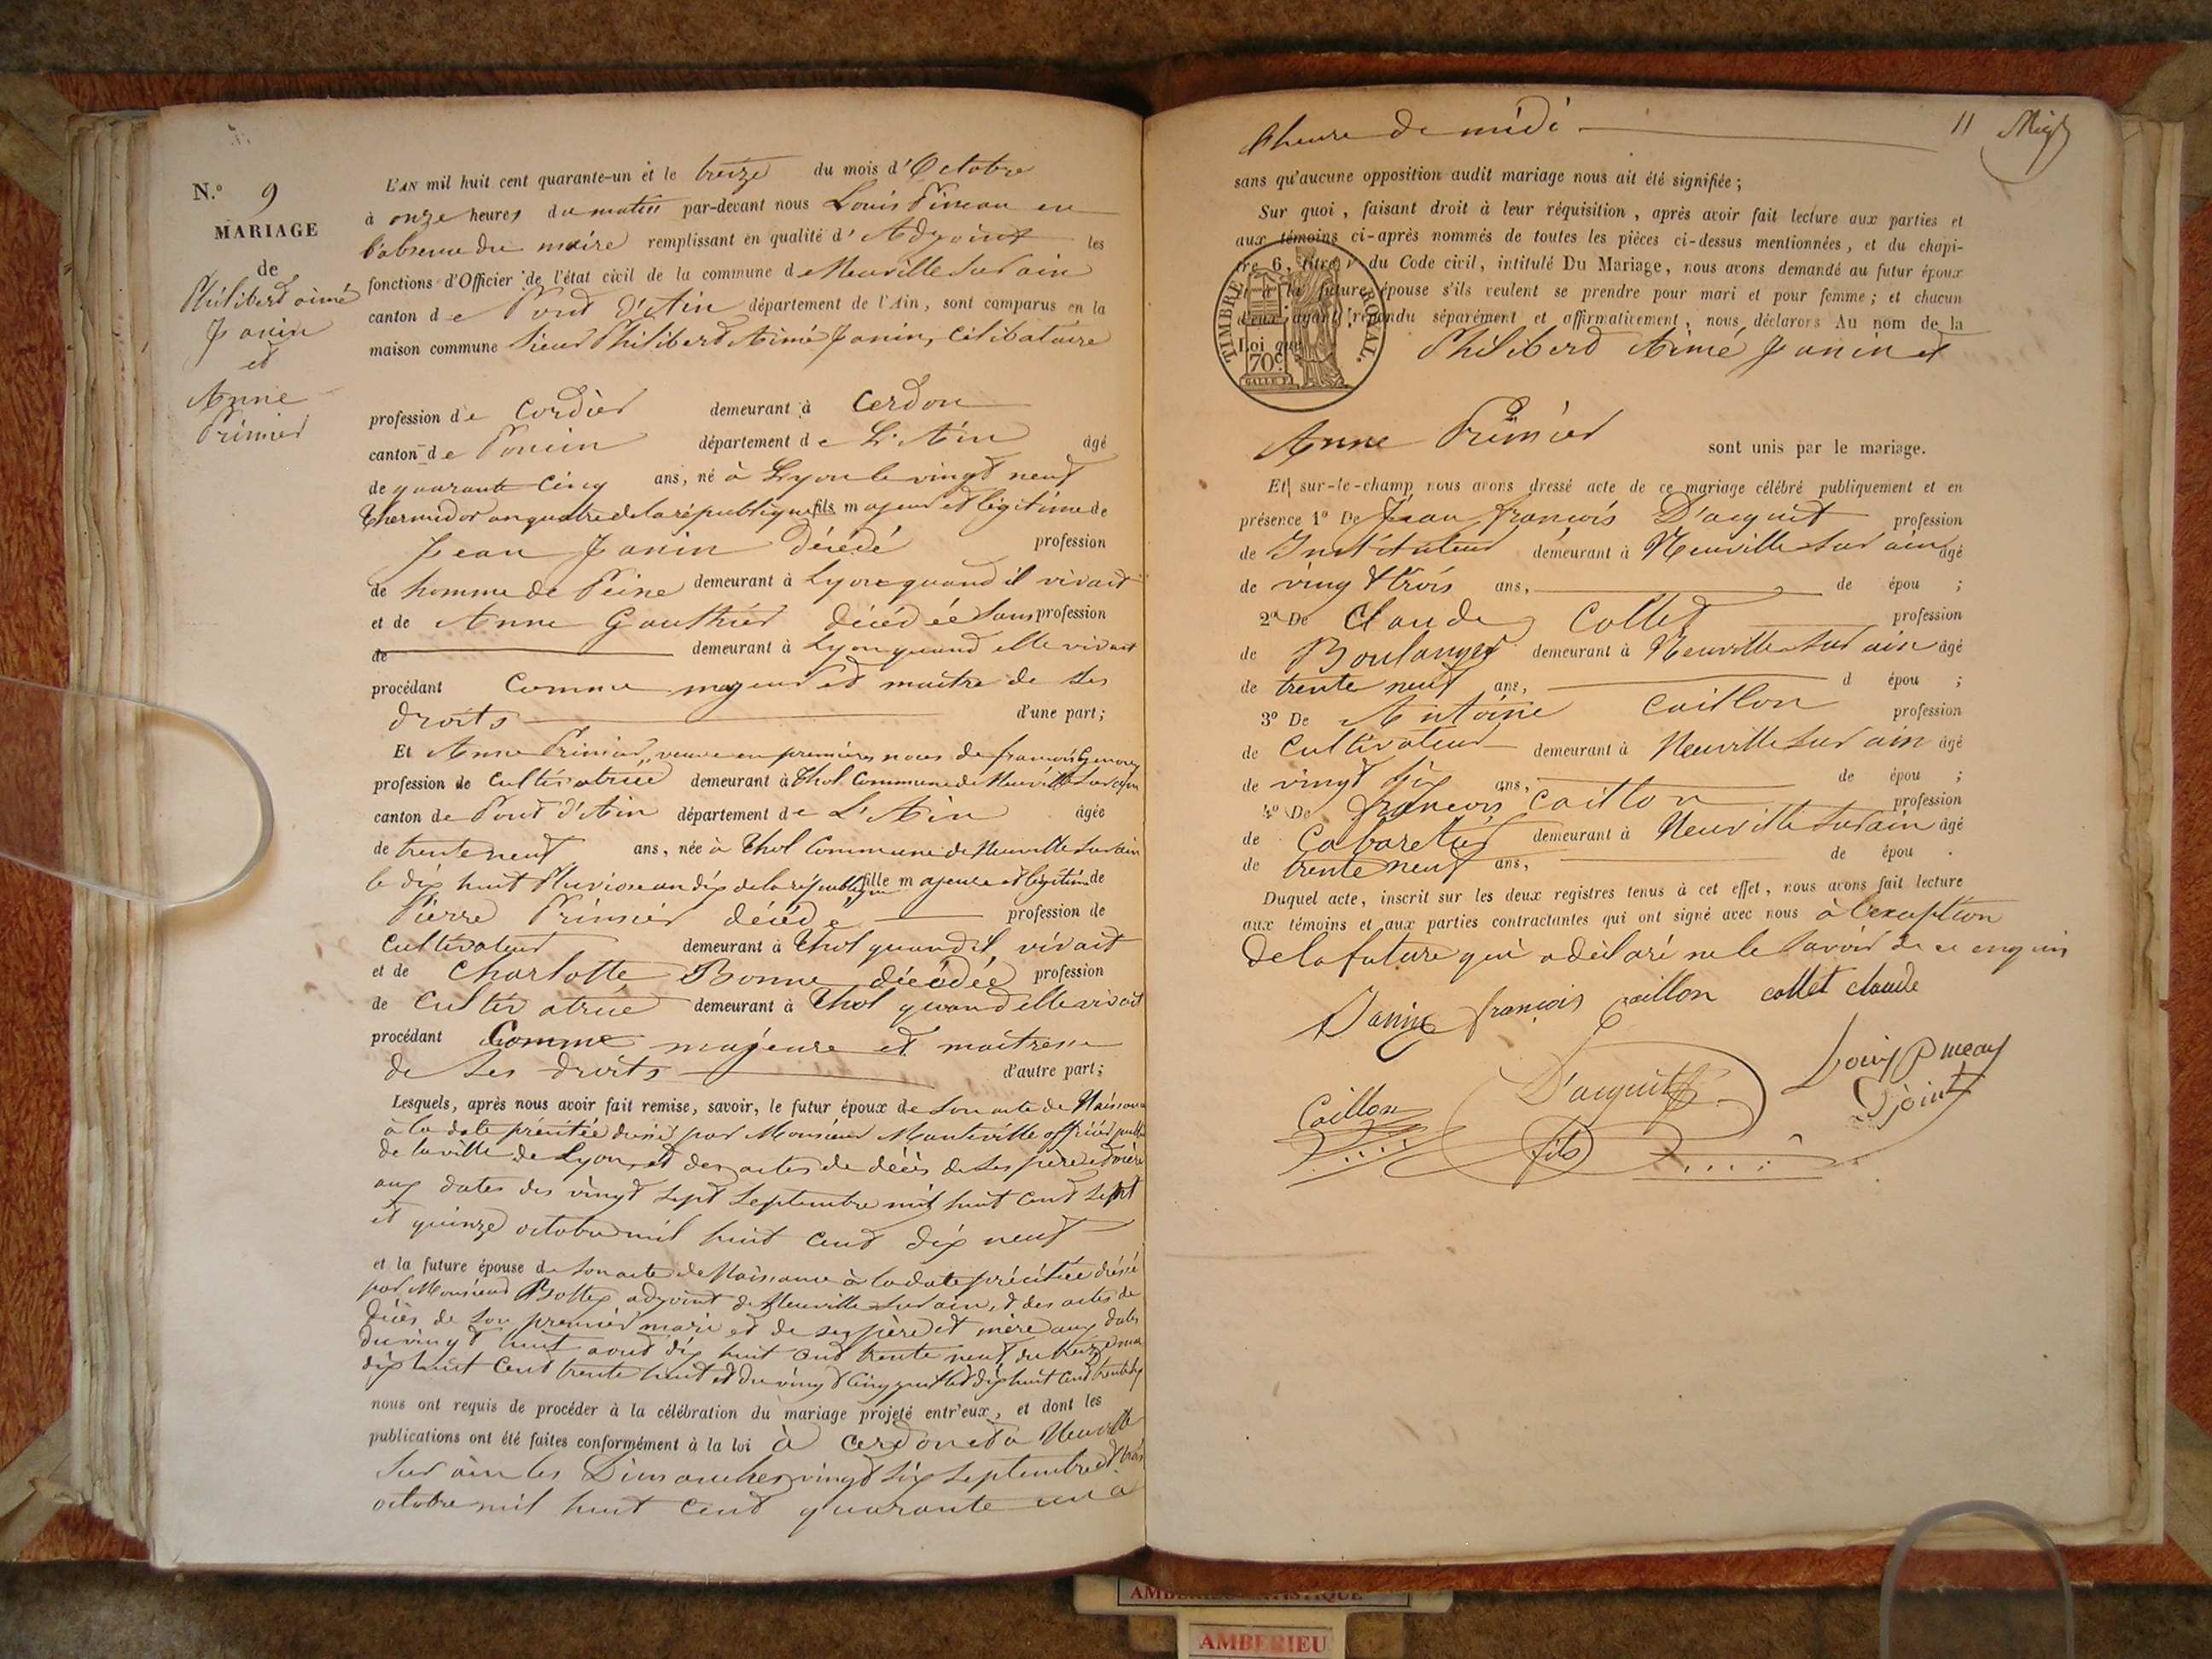 N.º 9
MARIAGE
de
Philibert aimé
Janin
et
Anne
Primier
L'AN mil huit cent quarante-un et le treize du mois d'Octobre
à onze heures du matin par-devant nous Louis Pineau en
l'absence du maire remplissant en qualité d'Adjoint les
fonctions d'Officier de l'état civil de la commune de Neuville sur ain
canton de Pont d'Ain département de l'Ain, sont comparus en la
maison commune Sieur Philibert Aimé Janin, Célibataire
profession de Cordier demeurant à Cerdon
canton de Poncin département de L'Ain âgé
de quarante cinq ans, né à Lyon le vingt neuf
thermidor an quatre de la république fils majeur et légitime de
Jean Janin décédé profession
de homme de Peine demeurant à Lyon quand il vivait
et de Anne Gauthier décédée sans profession
de demeurant à Lyon quand elle vivait
procédant Comme majeur et maître de ses
droits d'une part;
Et Anne Primier, veuve en premières noces de françois
profession de Cultivatrice demeurant à Thol Commune de Neuville sur ain
canton de Pont d'Ain département de L'Ain âgée
de trente neuf ans, née à Thol Commune de Neuville sur ain
le dix huit Pluviose an dix de la république fille majeure et légitime de
Pierre Primier décédé profession de
Cultivateur demeurant à Thol quand il vivait
et de Charlotte Bonne décédée profession
de Cultivatrice demeurant à Thol quand elle vivait
procédant Comme majeure et maîtresse
de ses droits d'autre part;
Lesquels, après nous avoir fait remise, savoir, le futur époux de son acte de Naissance
à la date précitée dressé par Monsieur Manteville officier public
de la ville de Lyon, et des actes de décès de ses père et mère
aux dates des vingt sept septembre mil huit cent sept
et quinze octobre mil huit cent dix neuf
et la future épouse de son acte de Naissance à la date précitée dressé
par Monsieur Bottex adjoint de Neuville sur ain, et des actes de
décès de son premier mari et de ses père et mère aux dates
du vingt huit aout dix huit cent trente neuf, du treize mai
dix huit cent trente huit et du vingt cinq juillet dix huit cent trente
nous ont requis de procéder à la célébration du mariage projeté entr'eux, et dont les
publications ont été faites conformément à la loi à Cerdon et à Neuville
sur ain les Dimanches vingt six septembre et trois
octobre mil huit cent quarante un a
l'heure de midi
11
sans qu'aucune opposition audit mariage nous ait été signifiée;
Sur quoi, faisant droit à leur réquisition, après avoir fait lecture aux parties et
aux témoins ci-après nommés de toutes les pièces ci-dessus mentionnées, et du chapi-
tre 6, titre V du Code civil, intitulé Du Mariage, nous avons demandé au futur époux
et à la future épouse s'ils veulent se prendre pour mari et pour femme; et chacun
d'eux ayant répondu séparément et affirmativement, nous déclarons Au nom de la
Loi que Philibert Aimé Janin et
TIMBRE ROYAL.
70c
Anne Primier sont unis par le mariage.
Et sur-le-champ nous avons dressé acte de ce mariage célébré publiquement et en
présence 1º De Jean françois D'acquit profession
de Instituteur demeurant à Neuville sur ain âgé
de vingt trois ans, de épou ;
2º De Claude Collet profession
de Boulanger demeurant à Neuville sur ain âgé
de trente neuf ans, d épou ;
3º De Antoine Caillon profession
de Cultivateur demeurant à Neuville sur ain âgé
de vingt six ans, de épou ;
4º De françois Caillon profession
de Cabaretier demeurant à Neuville sur ain âgé
de trente neuf ans, de épou .
Duquel acte, inscrit sur les deux registres tenus à cet effet, nous avons fait lecture
aux témoins et aux parties contractantes qui ont signé avec nous à l'exception
de la future qui a déclaré ne le savoir de ce enquis
Janin françois Caillon collet claude
Caillon D'acquit fils Louis Pineau
adjoint
AMBERIEU